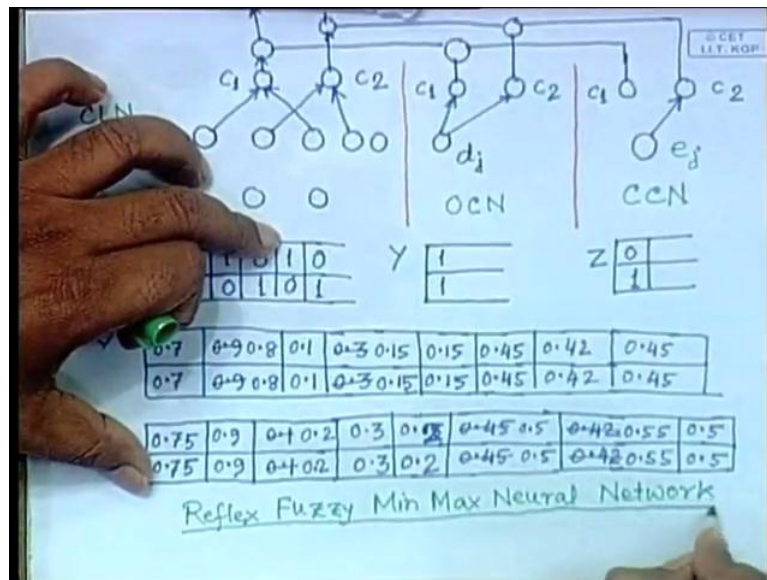 © CET
I.I.T. KGP
C1 C2 C1 C2 C1 C2
CLN
dj ej
OCN CCN
1 0 1 0 Y 1 Z 0
0 1 0 1 1 1
0.7 0.9 0.8 0.1 0.3 0.15 0.15 0.45 0.42 0.45
0.7 0.9 0.8 0.1 0.3 0.15 0.15 0.45 0.42 0.45
0.75 0.9 0.1 0.2 0.3 0.45 0.5 0.42 0.55 0.5
0.75 0.9 0.1 0.2 0.3 0.2 0.45 0.5 0.42 0.55 0.5
Reflex Fuzzy Min Max Neural Network